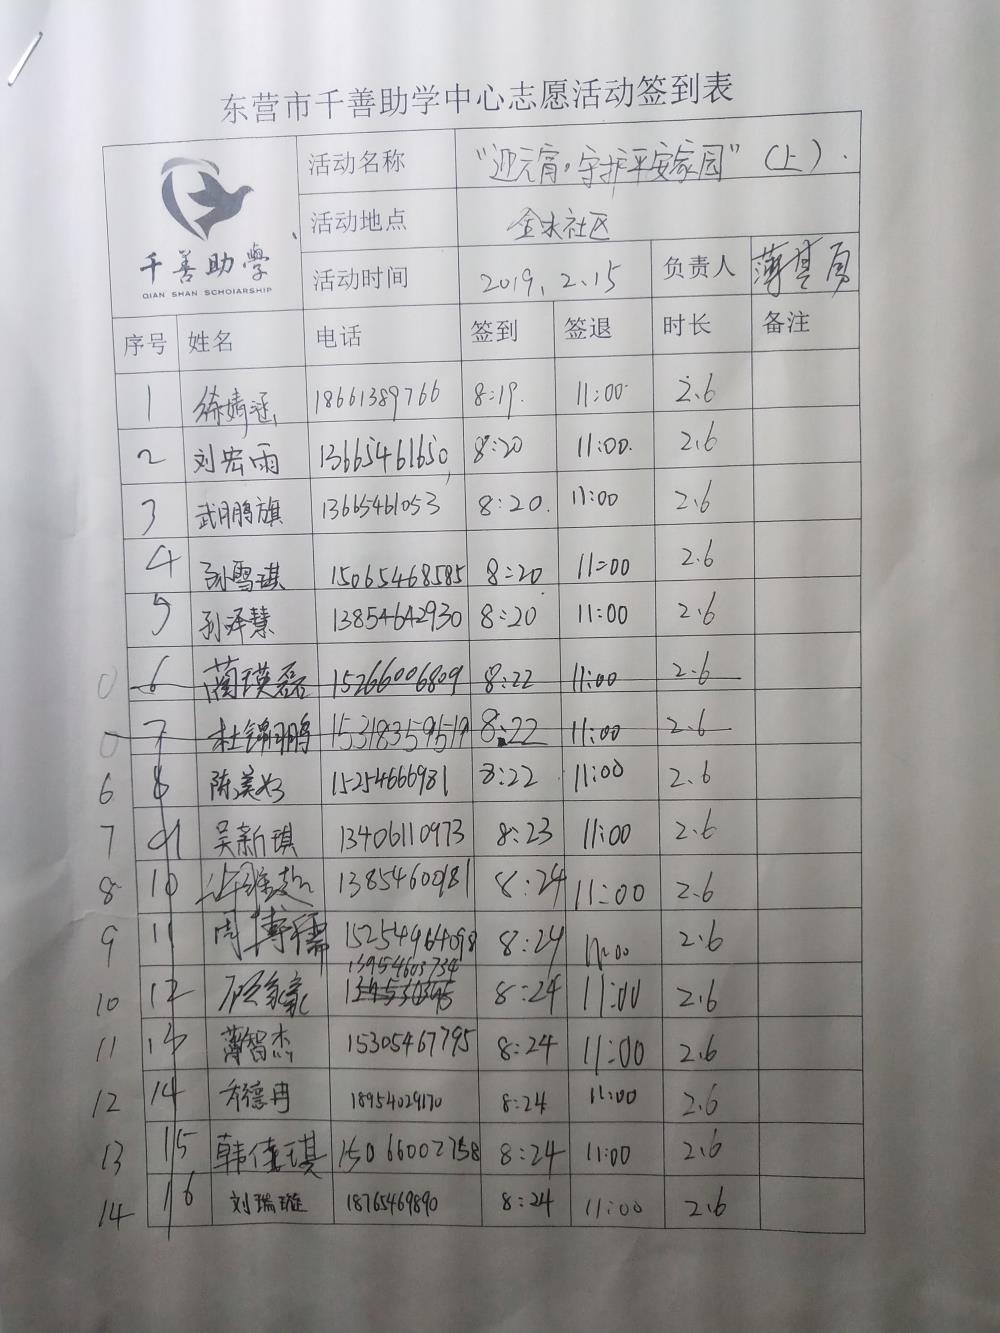 东营市千善助学中心志愿活动签到表
千善助學
QIAN SHAN SCHOIARSHIP
活动名称 “迎元宵,守护平安家园”(上).
活动地点 金水社区
活动时间 2019.2.15 负责人 薄其勇
序号 姓名 电话 签到 签退 时长 备注
1 徐婧涵 18661389766 8:19 11:00 2.6
2 刘宏雨 13665461650 8:20 11:00 2.6
3 武鹏旗 13665461053 8:20 11:00 2.6
4 孙雪琪 15065468585 8:20 11:00 2.6
5 孙泽慧 13854642930 8:20 11:00 2.6
0 6 蔺璞磊 15266006809 8:22 11:00 2.6
0 7 杜锦鹏 15318359519 8:22 11:00 2.6
6 8 陈美好 15254666981 8:22 11:00 2.6
7 9 吴新琪 13406110973 8:23 11:00 2.6
8 10 13854600181 8:24 11:00 2.6
9 11 周博儒 15254964098 8:24 11:00 2.6
10 12 13954603734 8:24 11:00 2.6
11 13 薄智杰 15305467795 8:24 11:00 2.6
12 14 乔德冉 18954029170 8:24 11:00 2.6
13 15 韩佳琪 15066002758 8:24 11:00 2.6
14 16 刘瑞璇 18765469890 8:24 11:00 2.6